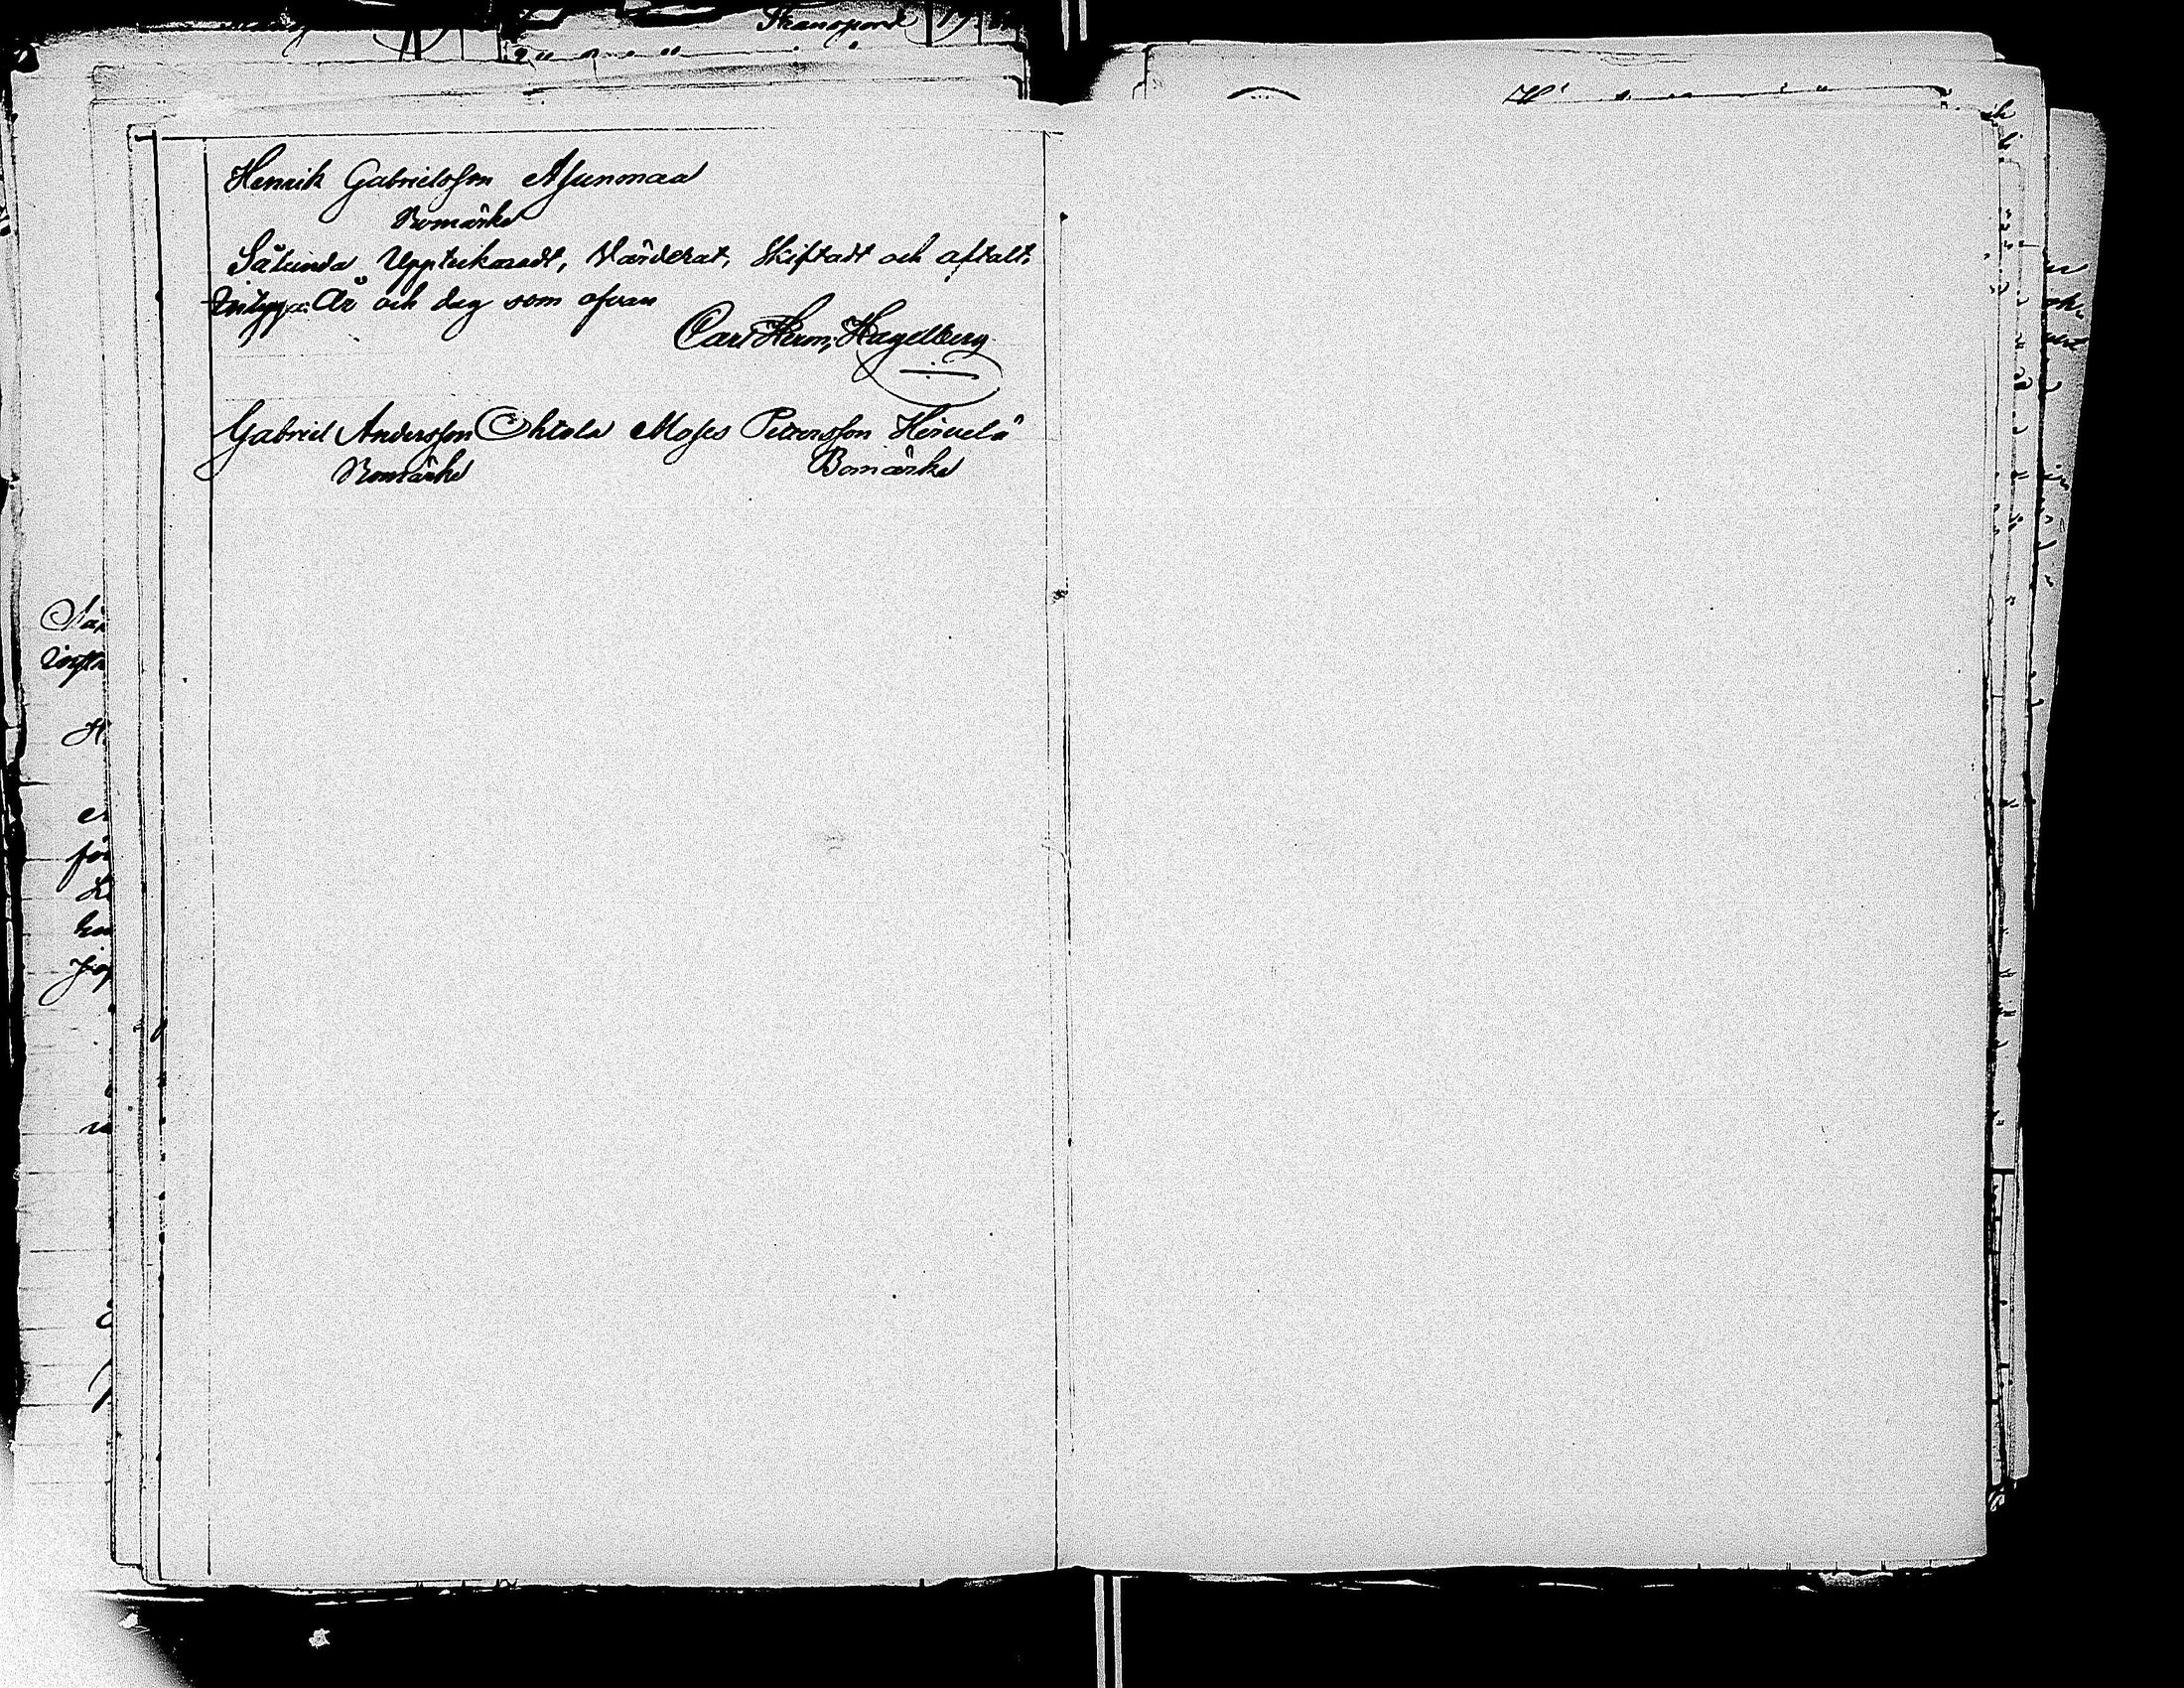 Transport
Henrik Gabrielsson Asunmaa
Bomärke
Sålunda Uppteknadt, Värderat, Skiftadt och aftalt,
intyga: År och dag som ofvan
Carl Herm, Hagelberg
Gabriel Andersson Ohtola Moses Pettersson Heivelä
Bomärke Bomärke